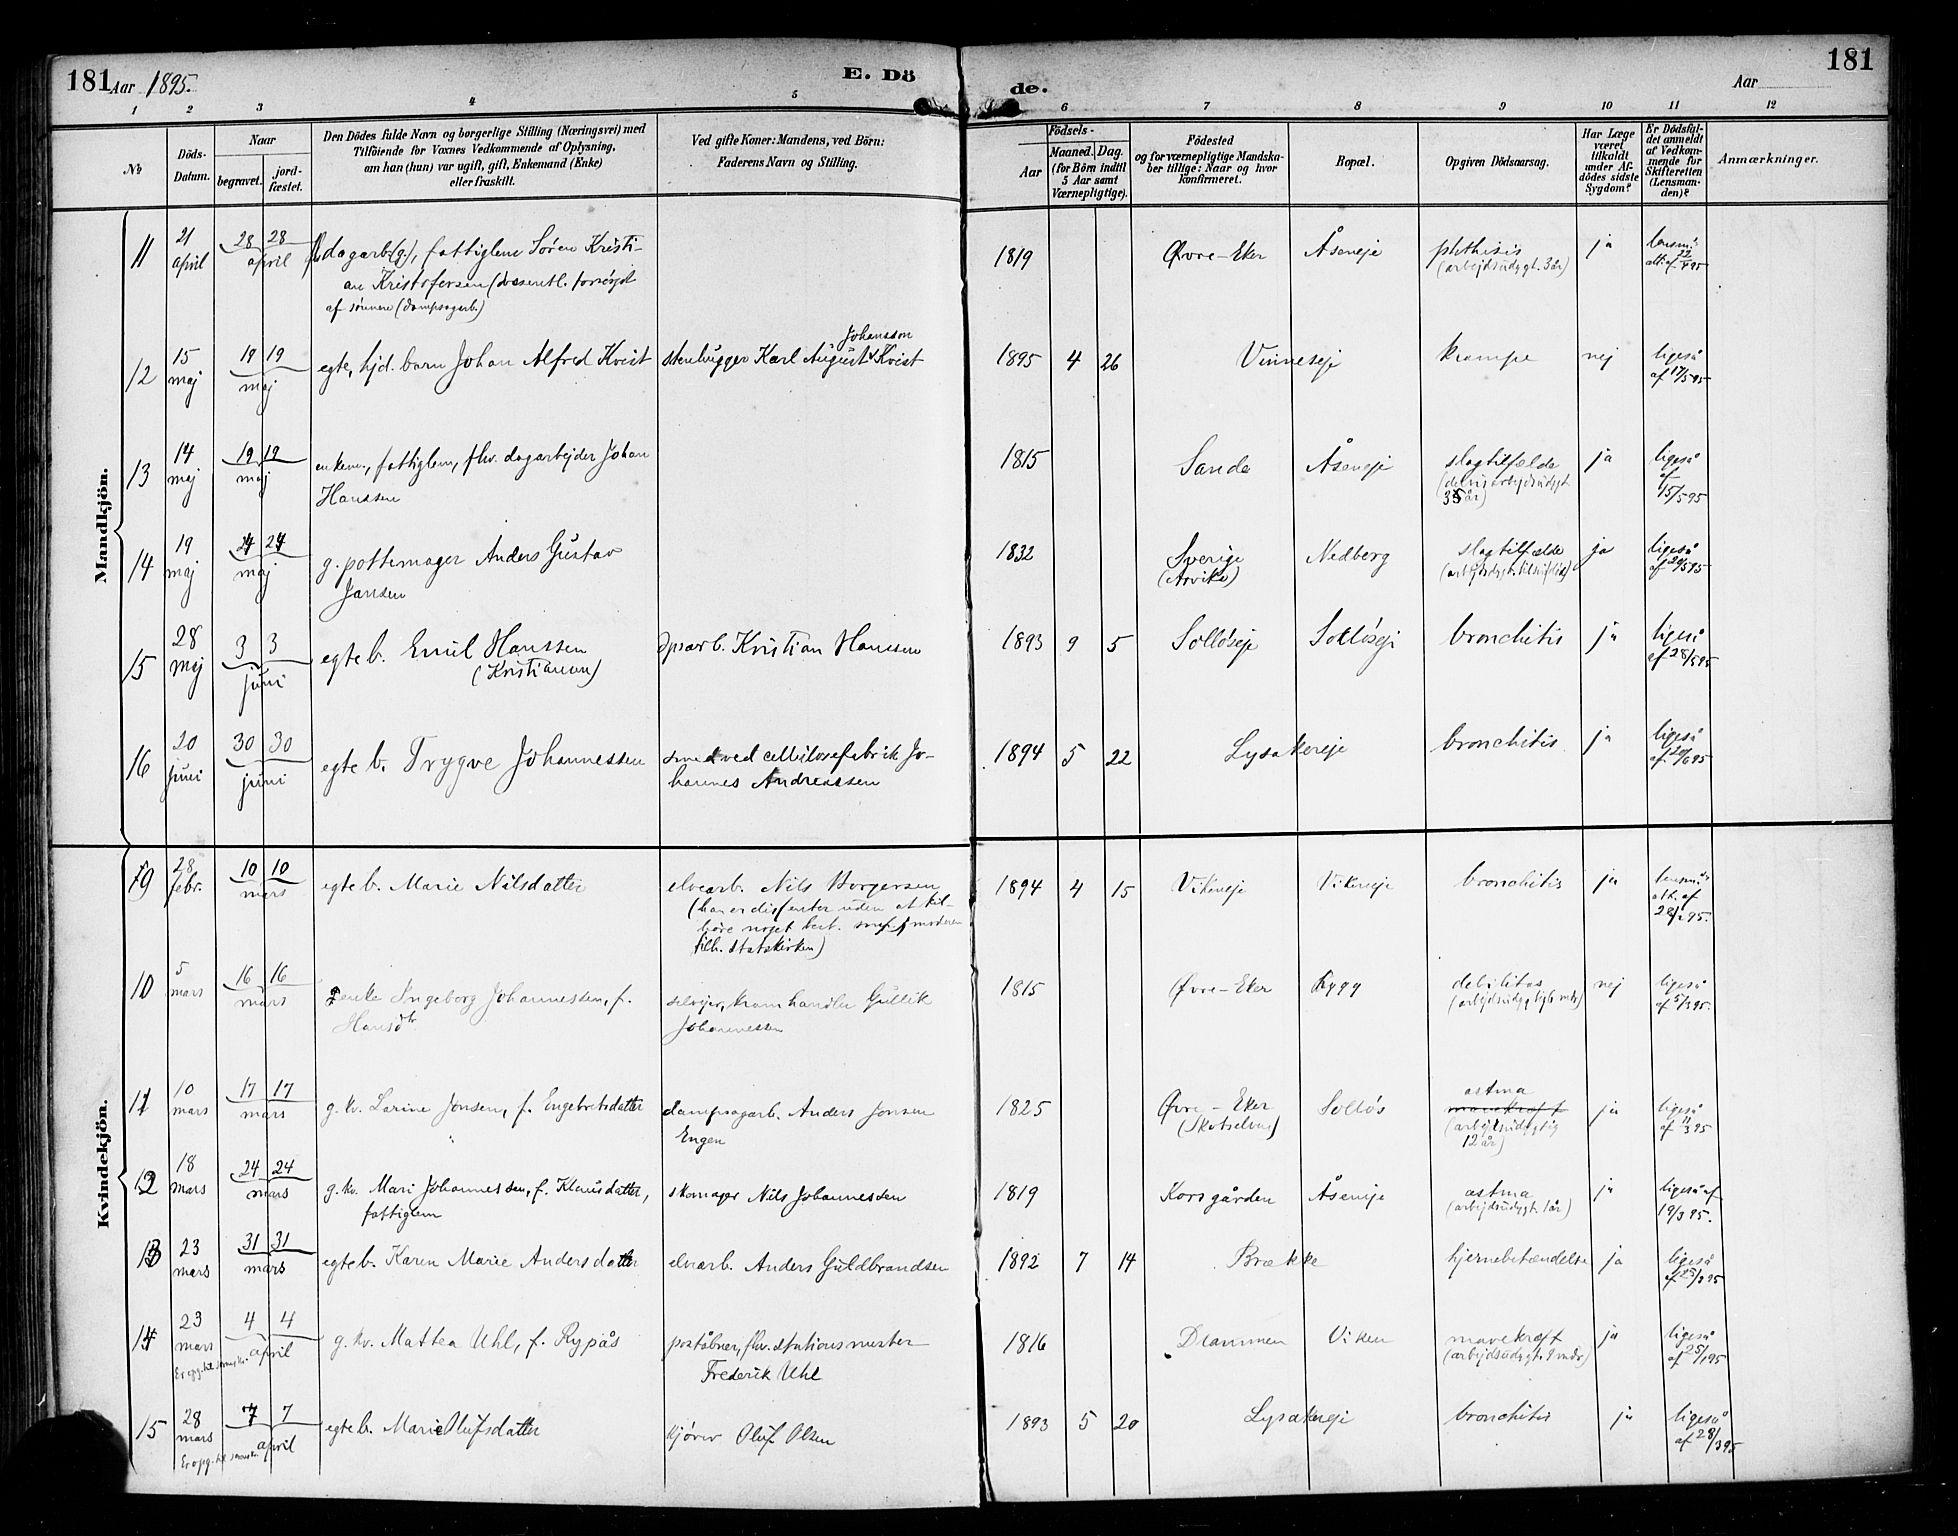 181 Aar 1895. E. Dö de. Aar 181
1 2 3 4 5 6 7 8 9 10 11 12
No
Döds-Datum.
Naar
begravet.
jordfæstet.
Den Dödes fulde Navn og borgerlige Stilling (Næringsvei) med
Tilföiende for Voxnes Vedkommende af Oplysning,
om han (hun) var ugift, gift, Enkemand (Enke)
eller fraskilt.
Ved gifte Koner: Mandens, ved Börn:
Faderens Navn og Stilling.
Födsels-
Aar
Maaned. Dag.
(for Börn indtil
5 Aar samt
Værnepligtige).
Födested
og for værnepligtige Mandskaber tillige: Naar og hvor
konfirmeret.
Bopæl.
Opgiven Dödsaarsag.
Har Læge
været
tilkaldt
under Afdödes sidste
Sygdom?
Er Dödsfaldet anmeldt
af Vedkommende for
Skifteretten
(Lensmanden)?
Anmærkninger.
Mandkjön.
11 21 april 28 28 april dagarb. (g.), fattiglem Søren Kristian Kristofersen (væsentl. forsørget af sønnene (dampsagarb.) 1819 Øvre-Eker Åseneje phthisis (arbejdsudygt. 3 år) ja
12 15 maj 19 19 maj egte, hjd. barn Johan Alfred Kvist stenhugger Karl August Johansson Kvist 1895 4 26 Vinneseje krampe nej ligeså af 17/5 95
13 14 maj 19 19 maj enkem., fattiglem, fhv. dagarbejder Johan Hanssen 1815 Sande Åseneje slagtilfælde (delvis arbejdsudygt. år) ja ligeså af 15/5 95
14 19 maj 24 24 maj g. pottemager Anders Gustav Jansen 1832 Sverige (Arvika) Nedberg slagtilfælde ja ligeså af 20/5 95
15 28 maj 3 3 juni egte b. Emil Hanssen (Kristiansen) dpsarb. Kristian Hanssen 1893 9 5 Solløseje Solløseje bronchitis ja ligeså af 28/5 95
16 20 juni 30 30 juni egte b. Trygve Johannessen smed ved cellulosefabrik Johannes Andreassen 1894 5 22 Lysakereje bronchitis ja ligeså af 20/6 95
Kvindekjön.
9 28 febr. 10 10 mars egte b. Marie Nilsdatter elvearb. Nils Borgersen (han er disenter uden at tilhøre noget best. moderen tilh. statskirken) 1894 4 15 Vikeneje Vikeneje bronchitis ja 28/2 95.
10 5 mars 16 16 mars enke Ingeborg Johannessen, f. Hansdtr selvejer, kramhandler Gullik Johannessen 1815 Øvre-Eker Rygg debilitas nej ligeså af 5/3 95.
11 10 mars 17 17 mars g. kv. Larine Jonsen, f. Engebretsdatter dampsagarb. Anders Jonsen Engen 1825 Øvre-Eker (Skotselven) Solløs astma mavekræft (arbejdsudygtig 12 år) ja ligeså af 11/3 95
12 18 mars 24 24 mars g. kv. Mari Johannessen, f. Klausdatter, fattiglem skomager Nils Johannessen 1819 Korsgården Åseneje astma (arbejdsudygt. 1 år) ja ligeså af 19/3 95.
13 23 mars 31 31 mars egte b. Karen Marie Andersdatter elvarb. Anders Guldbrandsen 1892 7 14 Brække hjernebetændelse ja ligeså af 25/3 95
14 23 mars 4 4 april g. kv. Mattea Uhl, f. Rypås poståbner, fhv. stationsmester Frederik Uhl 1816 Drammen Viken mavekræft (arbejdsudygt. 9 mdr) ja ligeså af 25/ 95
15 28 mars 7 7 april egte b. Marie Olufsdatter kjører Oluf Olsen 1893 5 20 Lysakereje bronchitis ja ligeså af 28/3 95